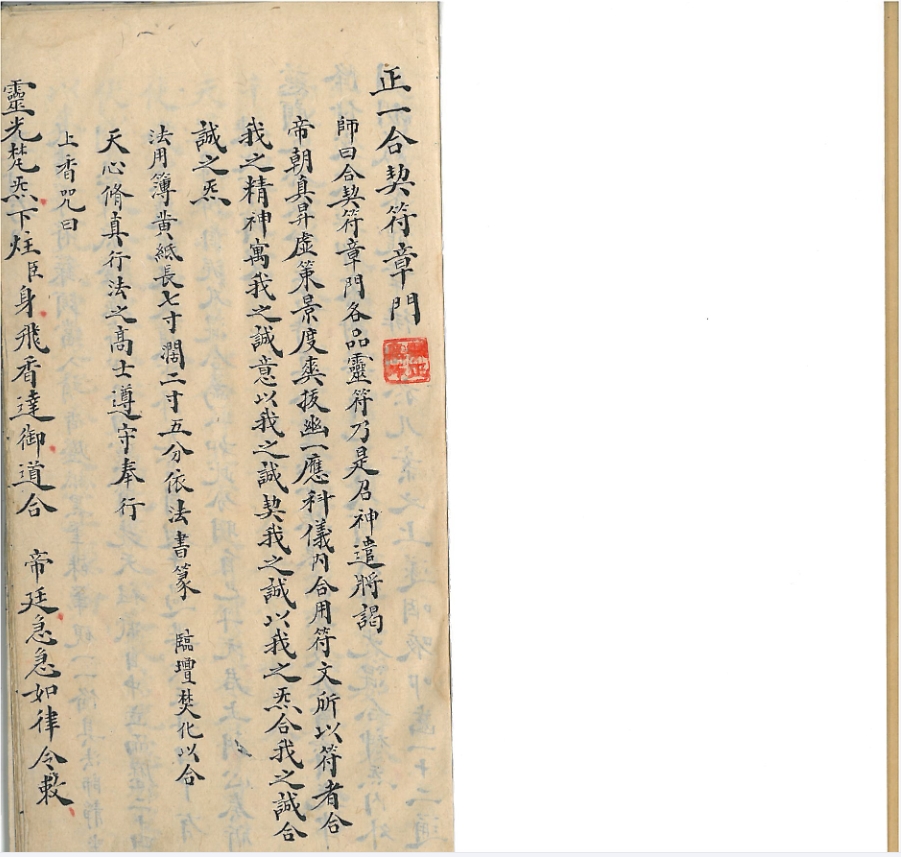 正一合契符章門
師曰合契符章門各品靈符乃是召神遣將謁
帝朝真昇虛策景度爽拔幽一應科儀內合用符文所以符者合
我之精神寓我之誠意以我之誠契我之誠以我之炁合我之誠合
誠之炁
法用簿黃紙長七寸濶二寸五分依法書篆 臨壇焚化以合
天心脩真行法之高士遵守奉行
上香咒曰
靈光梵炁下炷臣身飛香達御道合 帝廷急急如律令敕